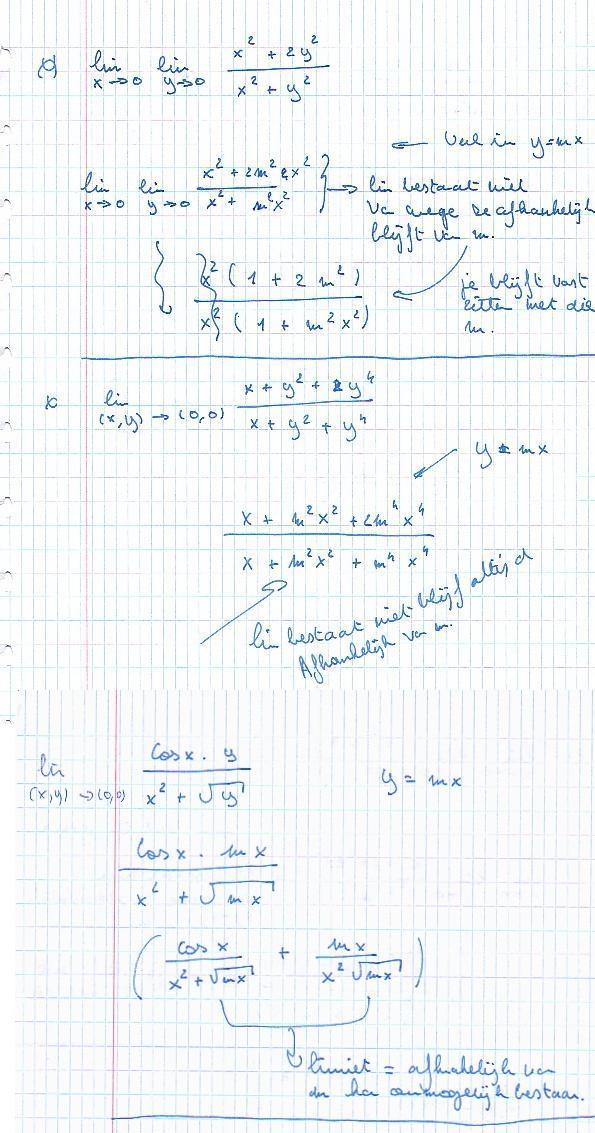 lim x→0 lim y→0 (x² + 2y²) / (x² + y²)
← Vul in y=mx
lim x→0 lim y→0 (x² + 2m²x²) / (x² + m²x²) } → lim bestaat niet
Van wege ze afhankelijk
blijft van m.
x² (1 + 2m²) / x² (1 + m²x²)
je blijft vast
zitten met die
m.
lim (x,y) → (0,0) (x + y² + 2y⁴) / (x + y² + y⁴)
y = mx
(x + m²x² + 2m⁴x⁴) / (x + m²x² + m⁴x⁴)
lim bestaat niet blijf altijd
Afhankelijk van m.
lim (x,y) → (0,0) (cos x · y) / (x² + √y)
y = mx
(cos x · mx) / (x² + √mx)
( cos x / (x² + √mx) + mx / (x² √mx) )
limiet = afhankelijk van
m kan onmogelijk bestaan.